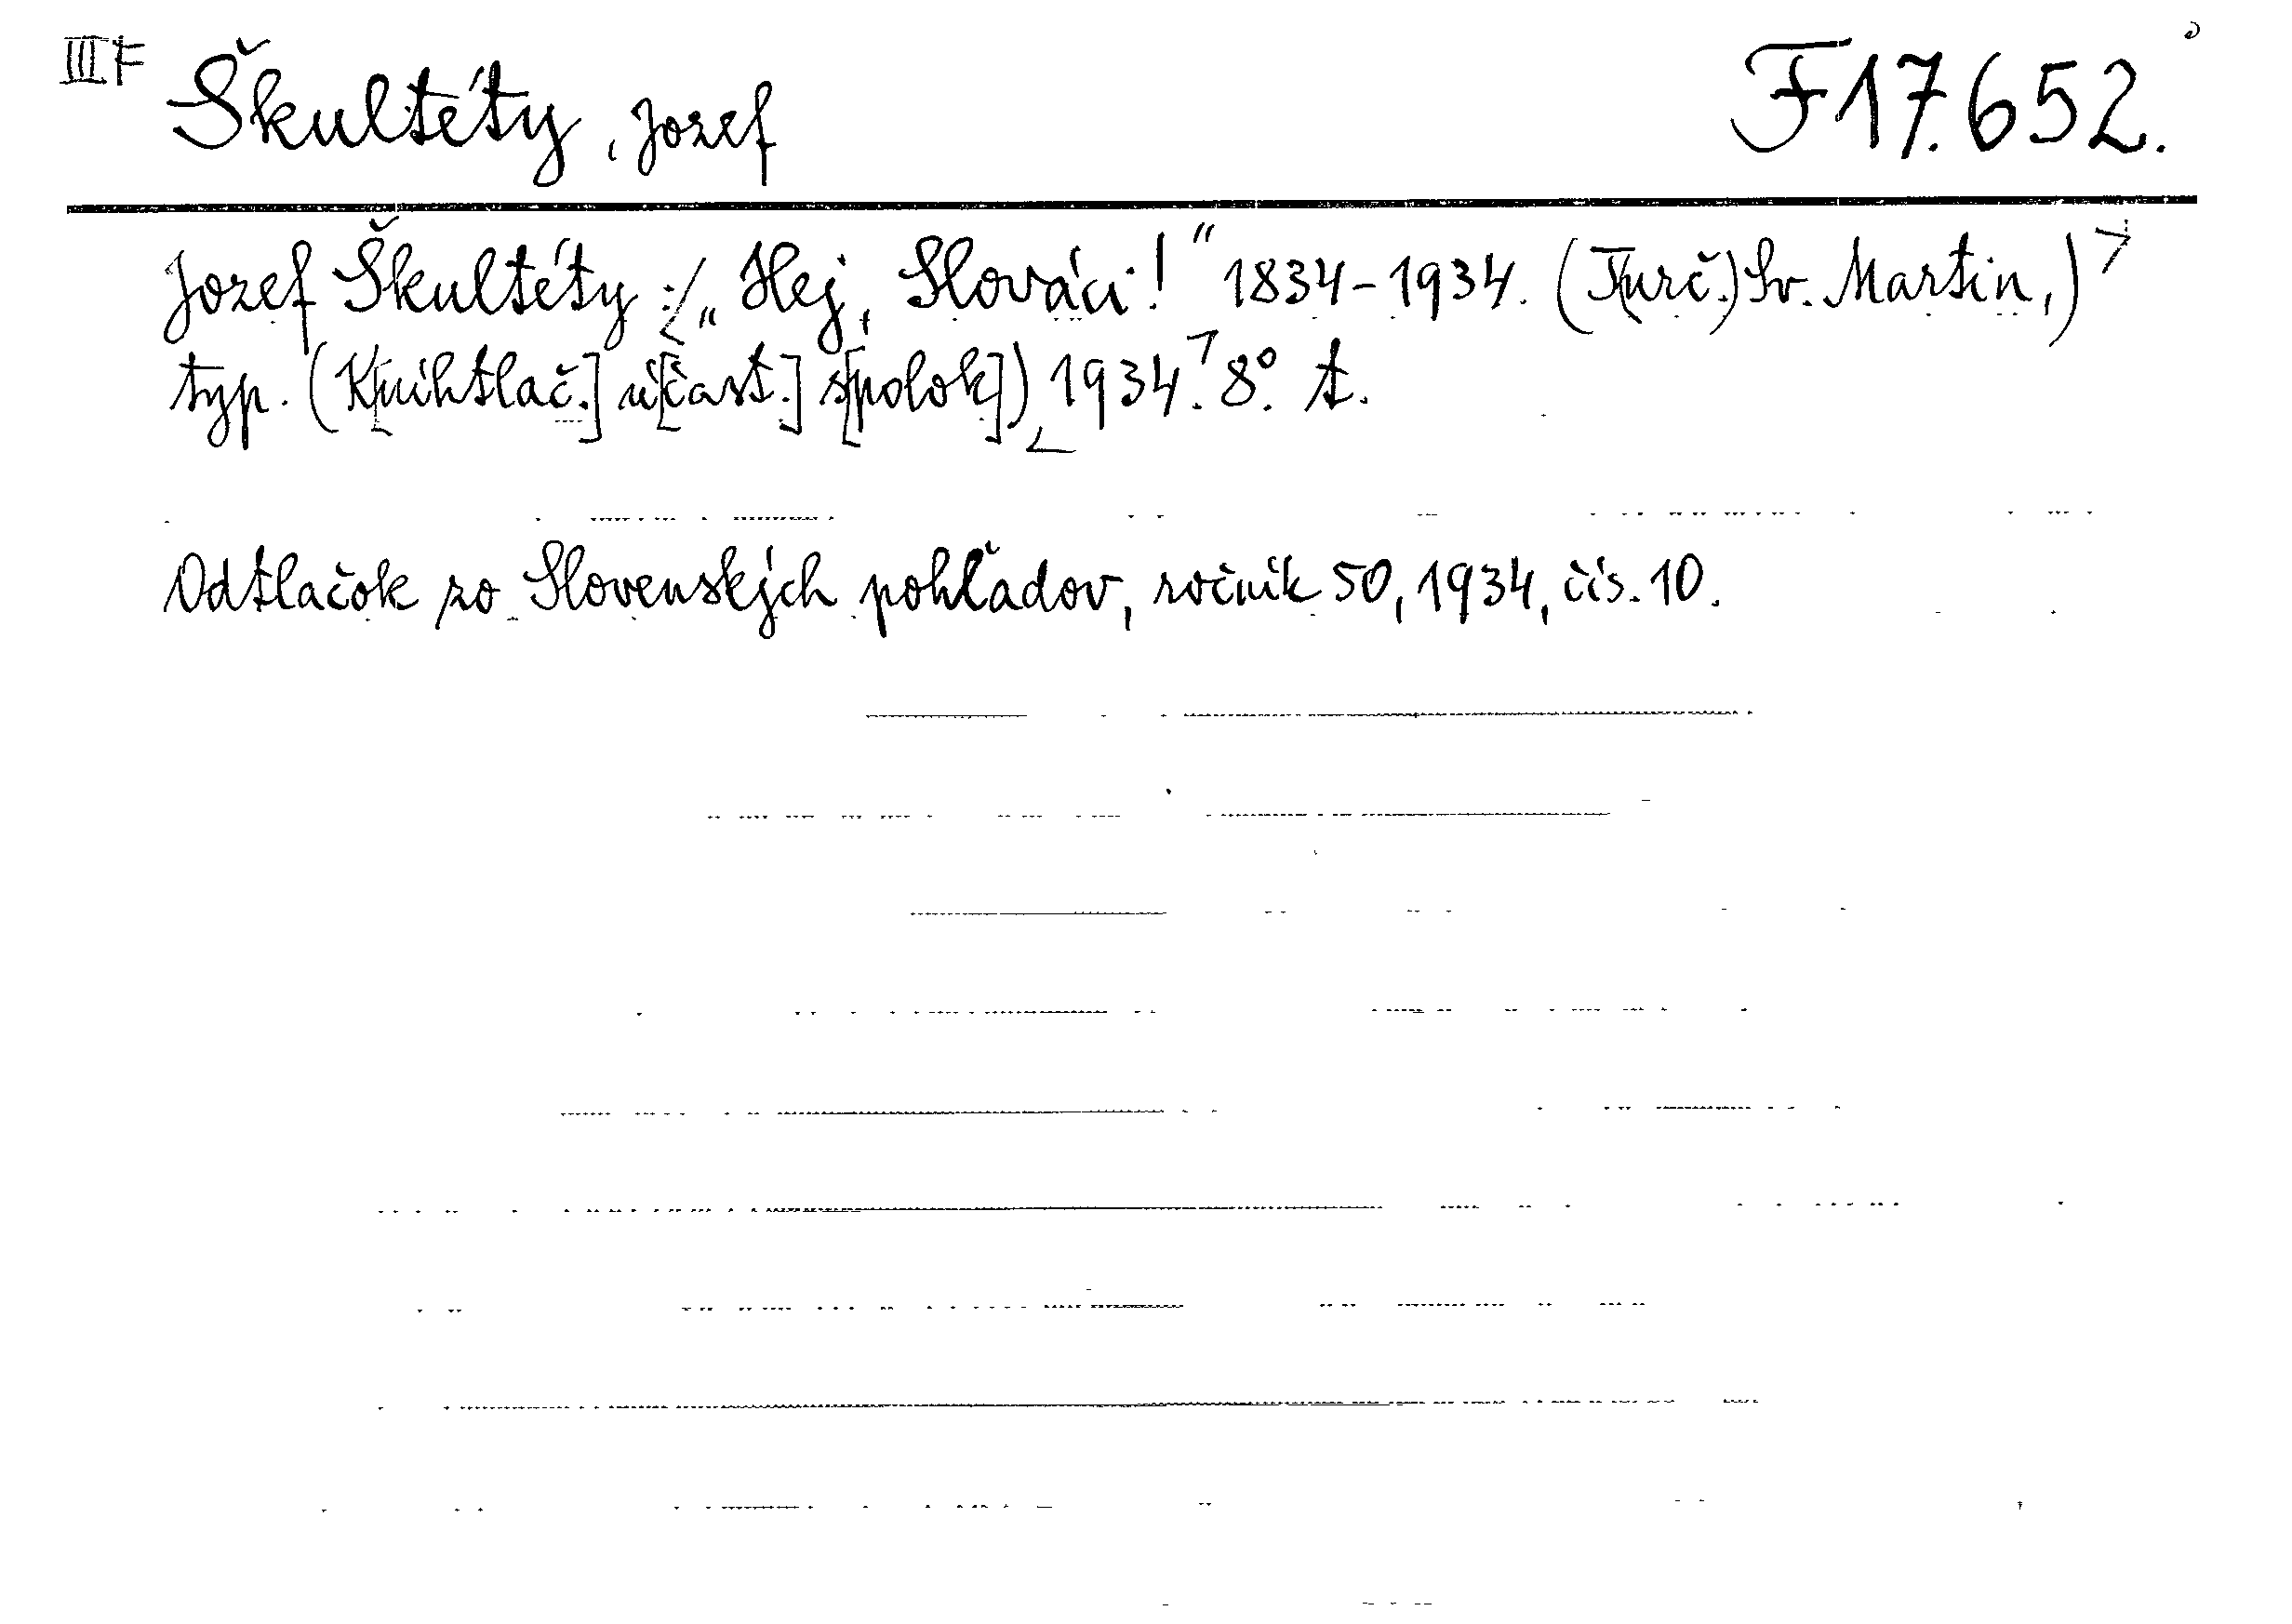 III F Škultéty, Jozef F 17.652.
Jozef Škultéty: „Hej, Slováci!“ 1834-1934. (Turč.) Sv. Martin,)
typ. (K[níhtlač.] ú[čast.] s[polok]) 1934. 8°. t.
Odtlačok zo Slovenských pohľadov, ročník 50, 1934, čís. 10.